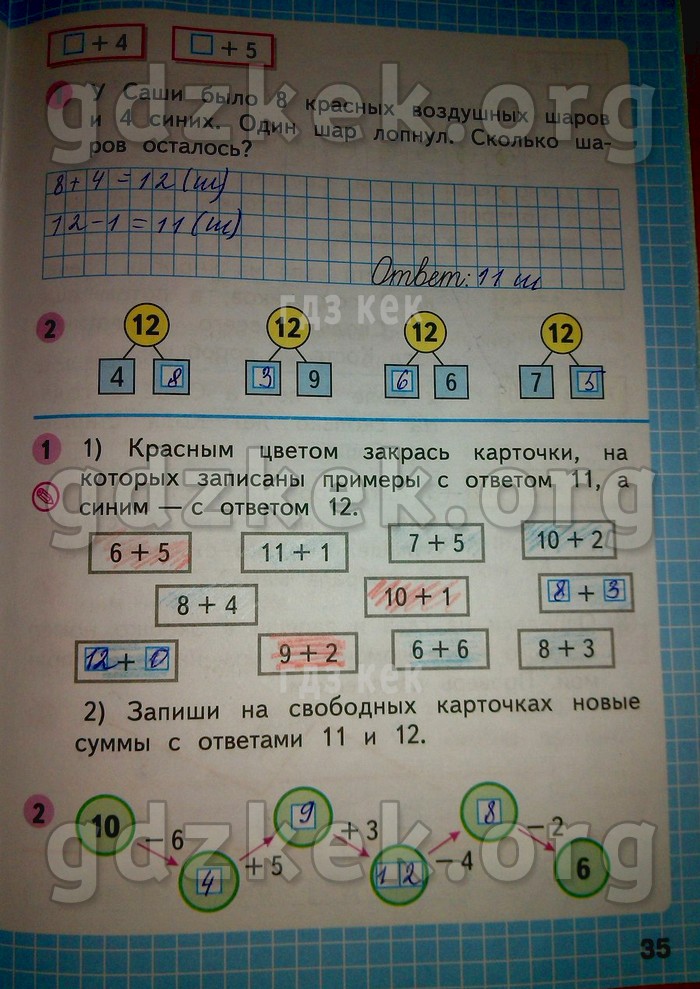 □ + 4 □ + 5
1 У Саши было 8 красных воздушных шаров
и 4 синих. Один шар лопнул. Сколько ша-
ров осталось?
8+4=12(ш)
12-1=11(ш)
Ответ: 11 ш
гдз кек
2 12 12 12 12
4 8 3 9 6 6 7 5
1 1) Красным цветом закрась карточки, на
которых записаны примеры с ответом 11, а
синим — с ответом 12.
6 + 5 11 + 1 7 + 5 10 + 2
8 + 4 10 + 1 8 + 3
12 + 0 9 + 2 6 + 6 8 + 3
гдз кек
2) Запиши на свободных карточках новые
суммы с ответами 11 и 12.
2 10 − 6 4 + 5 9 + 3 12 − 4 8 − 2 6
35
gdzkek.org
gdzkek.org
gdzkek.org